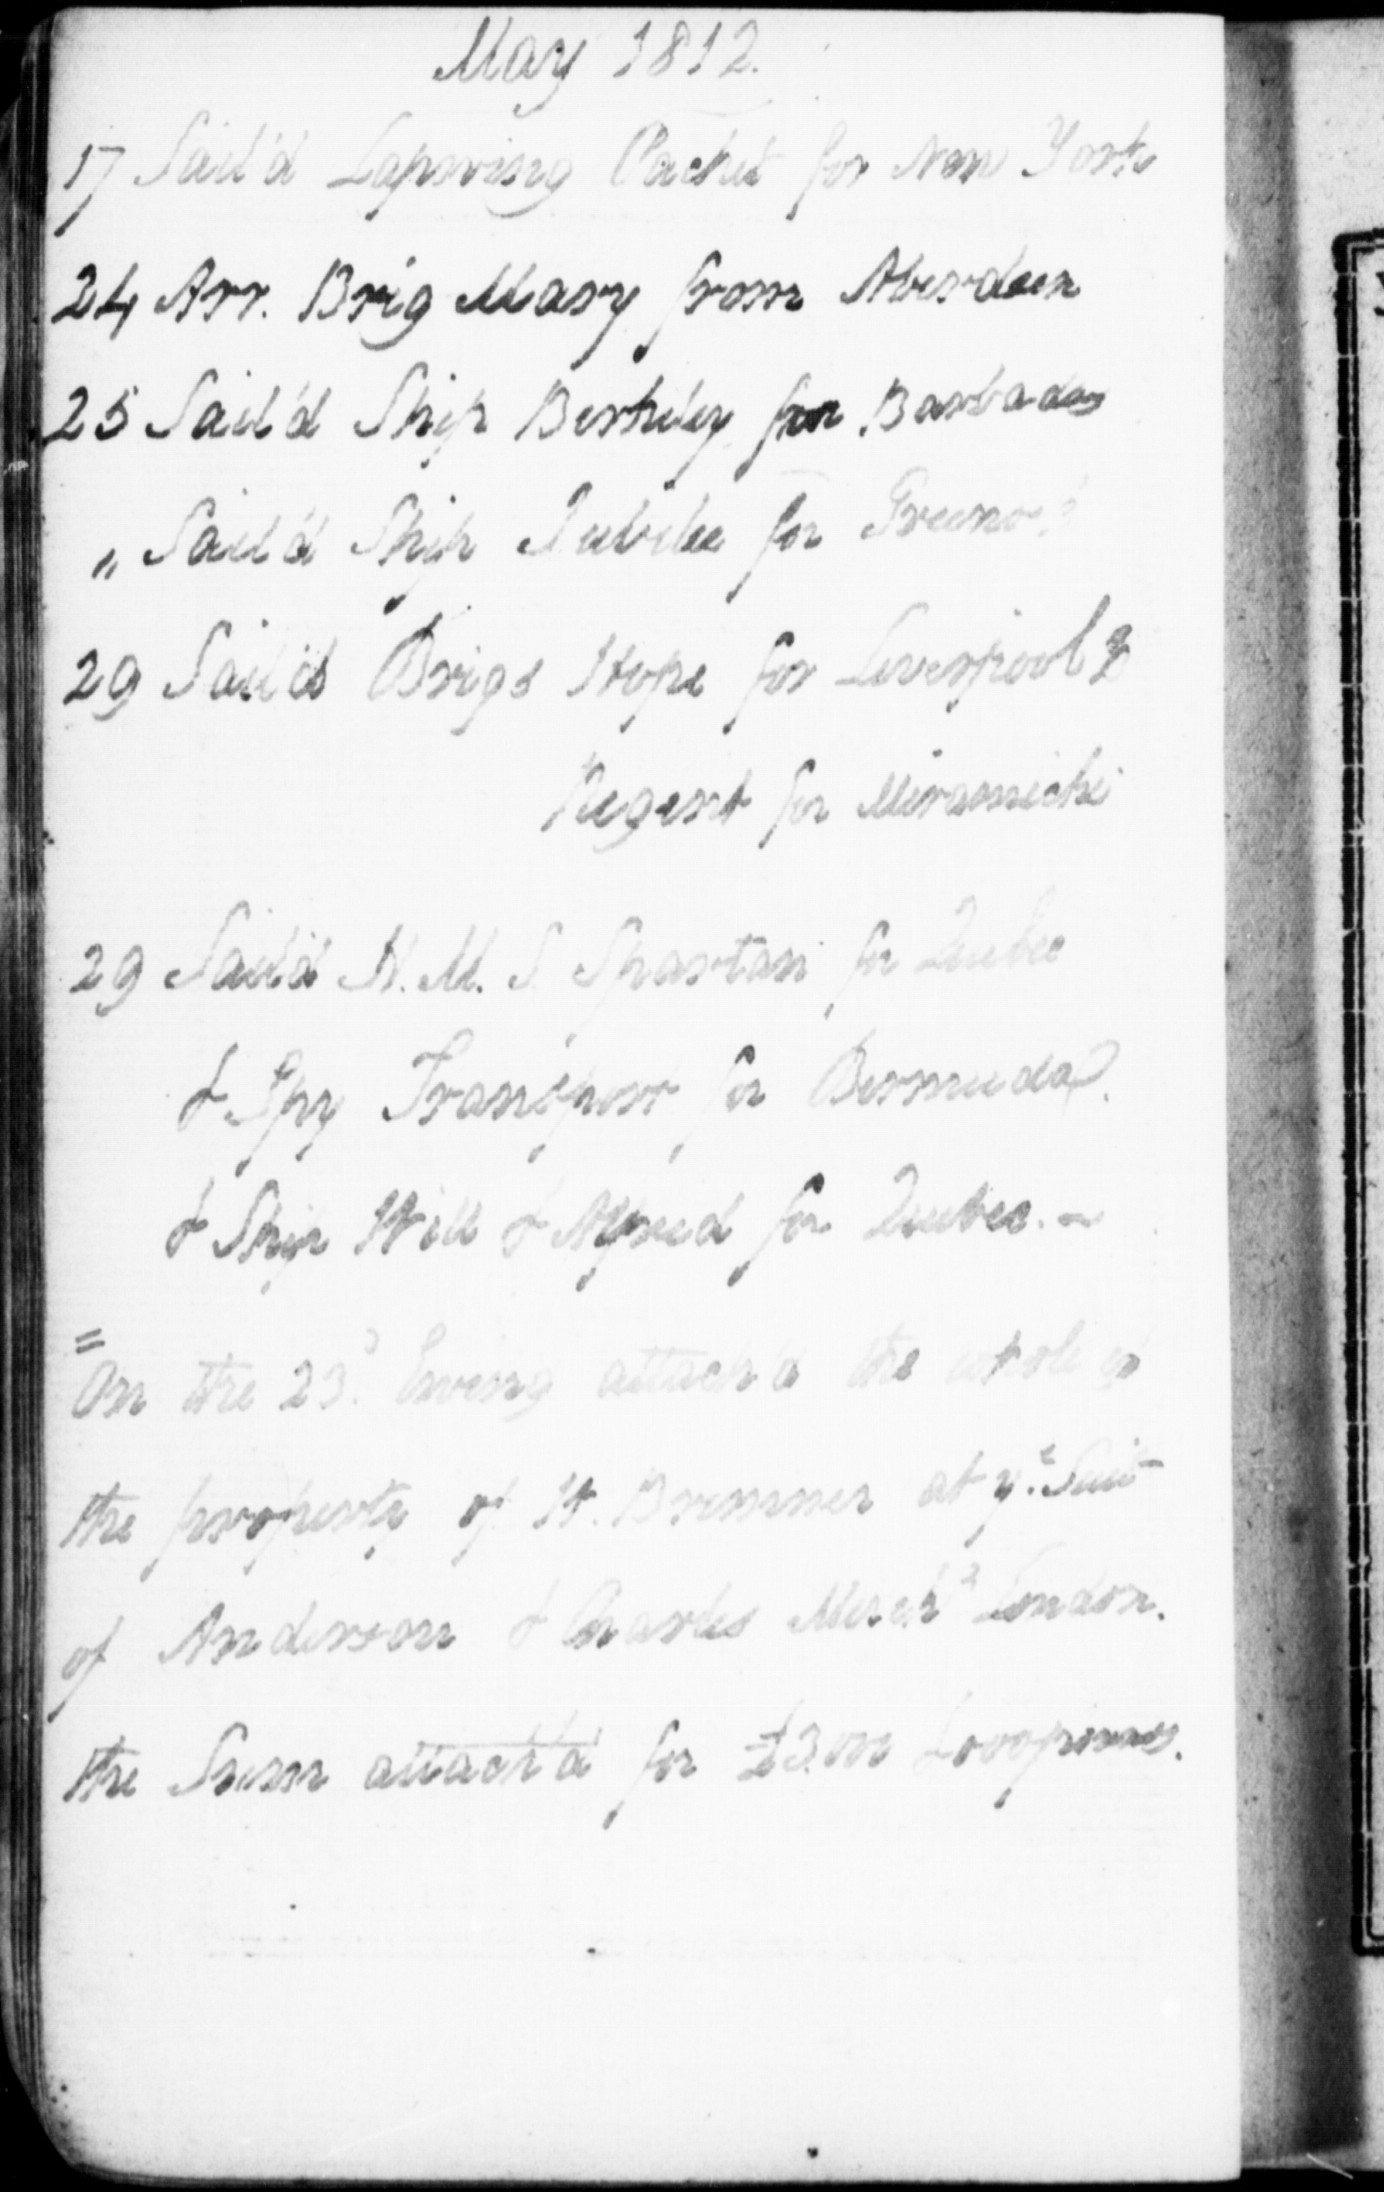 May 1812.
17 Sail'd Lapwing Packet for New York
24 Arr. Brig Mary from Aberdeen
25 Sail'd Ship Berkeley for Barbados
" Sail'd Ship Jubilee for Greenock
29 Sail'd Brigs Hope for Liverpool &
Regent for Miramichi
29 Sail'd H. M. S. Spartan for Quebec
& Spy Transport for Bermuda.
& Ship Will & Alfred for Quebec. ~
= On the 23d Ewing attach'd the whole of
the property of H. Bremner at ye Suit
of Anderson & Charles Merch London.
the Sum attach'd for £3